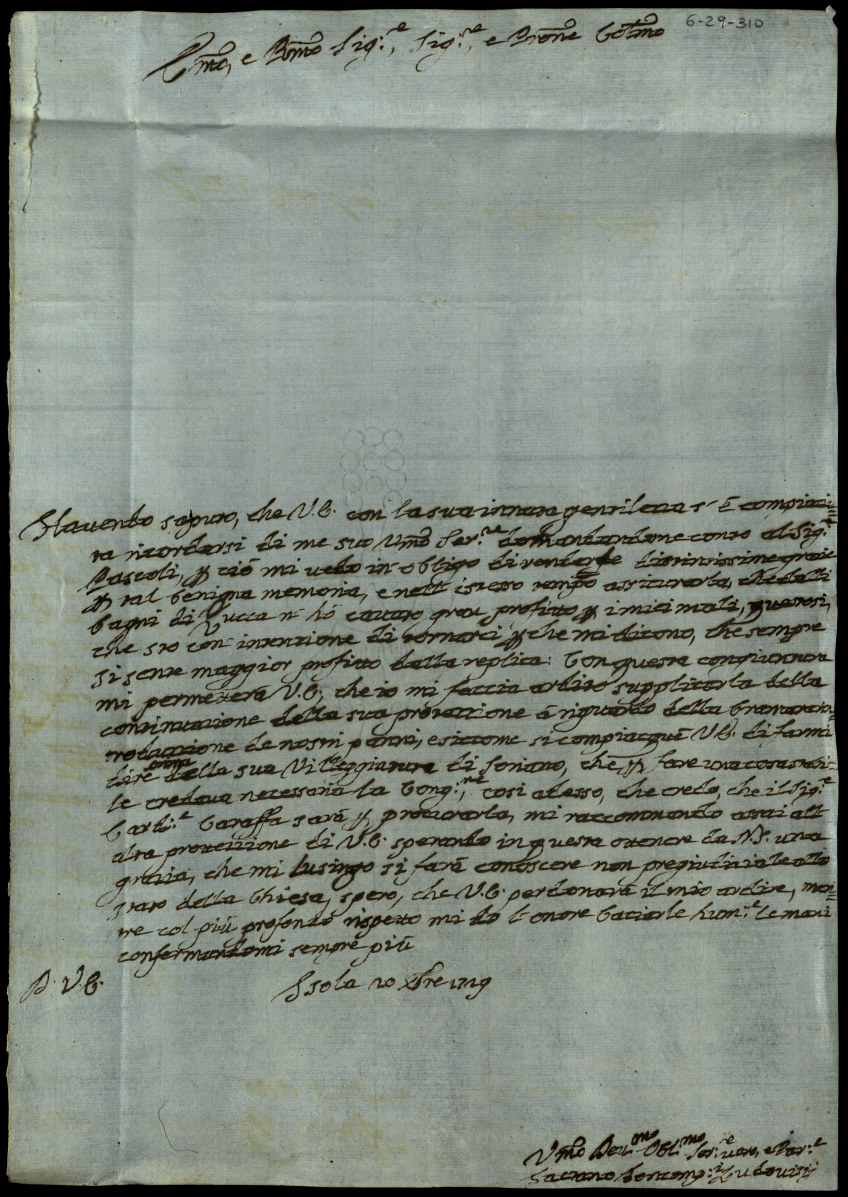 6-29-310
Emo, e Rmo Sig.re, Sig.re, e Prone Colmo
Havendo saputo, che V.E. con la sua innata gentilezza s'è compiaci=
ta ricordarsi di me suo Vmo Ser.re domandandone conto al Sig.re
Pascoli, p ciò mi vedo in obligo di renderle distintissime grazie
p tal benigna memoria, e nell'istesso tempo assicurarla, che dalli
bagni di Lucca n' hò cavato gran profitto p i miei mali,
che sto con intenzione di tornarci p che mi dicono, che sempre
si sente maggior profitto dalla replica: Con questa congiuntura
mi permetterà V.E., che io mi faccia ardito supplicarla della
continuazione della sua protezzione à riguardo della bramata in=
troduzzione de nostri panni, e siccome si compiacque V.E. di farmi
dire prima della sua Villeggiatura di Soriano, che p fare una cosa stabi=
le credeva necessaria la Cong.ne, così adesso, che credo, che il Sig.re
Card.le Caraffa sarà p procurarla, mi raccommando assai all'
alta protezzione di V.E. sperando in questa ottenere da N.S. una
grazia, che mi lusingo si farà conoscere non pregiudiziale allo
stato della Chiesa, spero, che V.E. perdonarà il mio ardire, men=
tre col più profondo rispetto mi dò l'onore baciarle hum.te le mani
confermandomi sempre più
D. V.E. Isola 20 Xbre 1719
Vmo Dev.mo Obl.mo Ser.re vero, e Par.te
Gaetano Boncomp.i Ludovisi